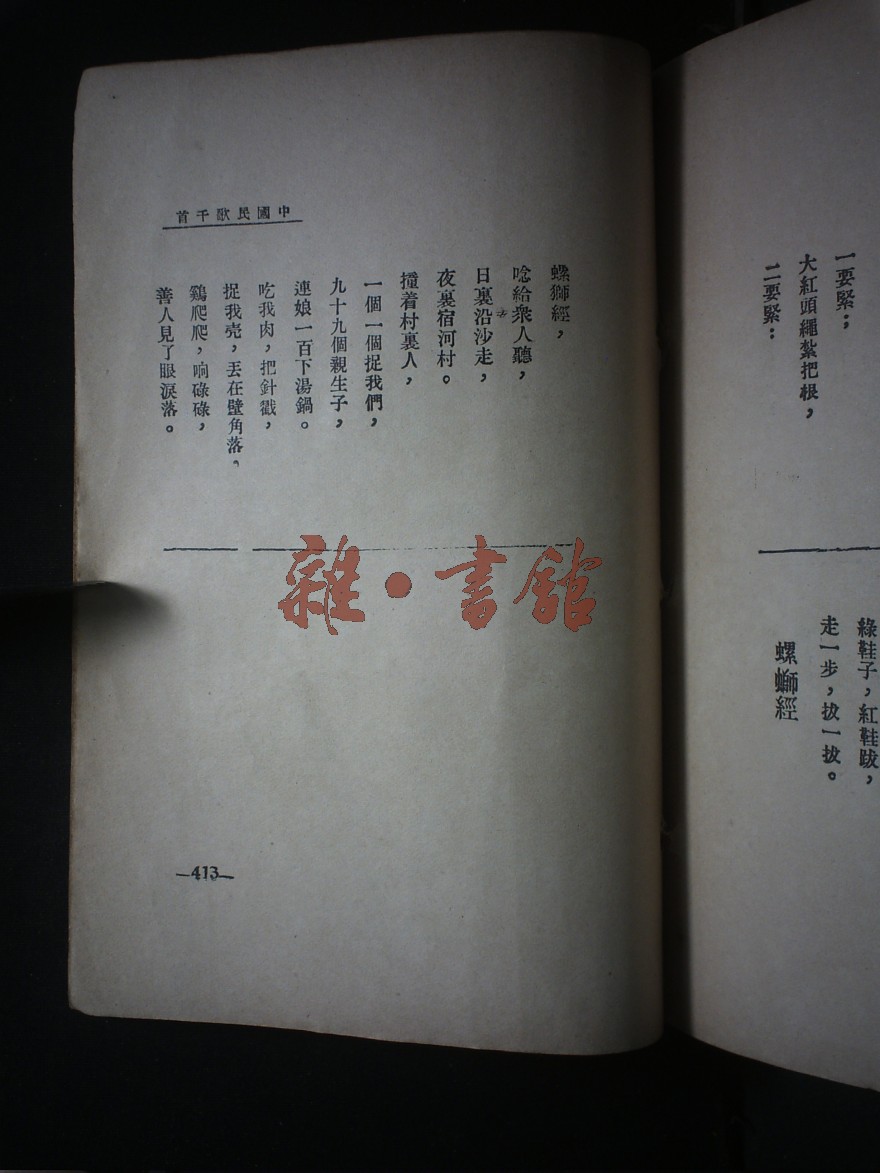 一要緊；
大紅頭繩紮把根，
二要緊：
綠鞋子，紅鞋跋，
走一步，拔一拔。
螺螄經
中國民歌千首
螺獅經，
唸給衆人聽，
日裏沿沙走，
夜裏宿河村。
撞着村裏人，
一個一個捉我們，
九十九個親生子，
連娘一百下湯鍋。
吃我肉，把針戳，
捉我壳，丟在壁角落，
鷄爬爬，响碌碌，
善人見了眼淚落。
—413—
雜·書館